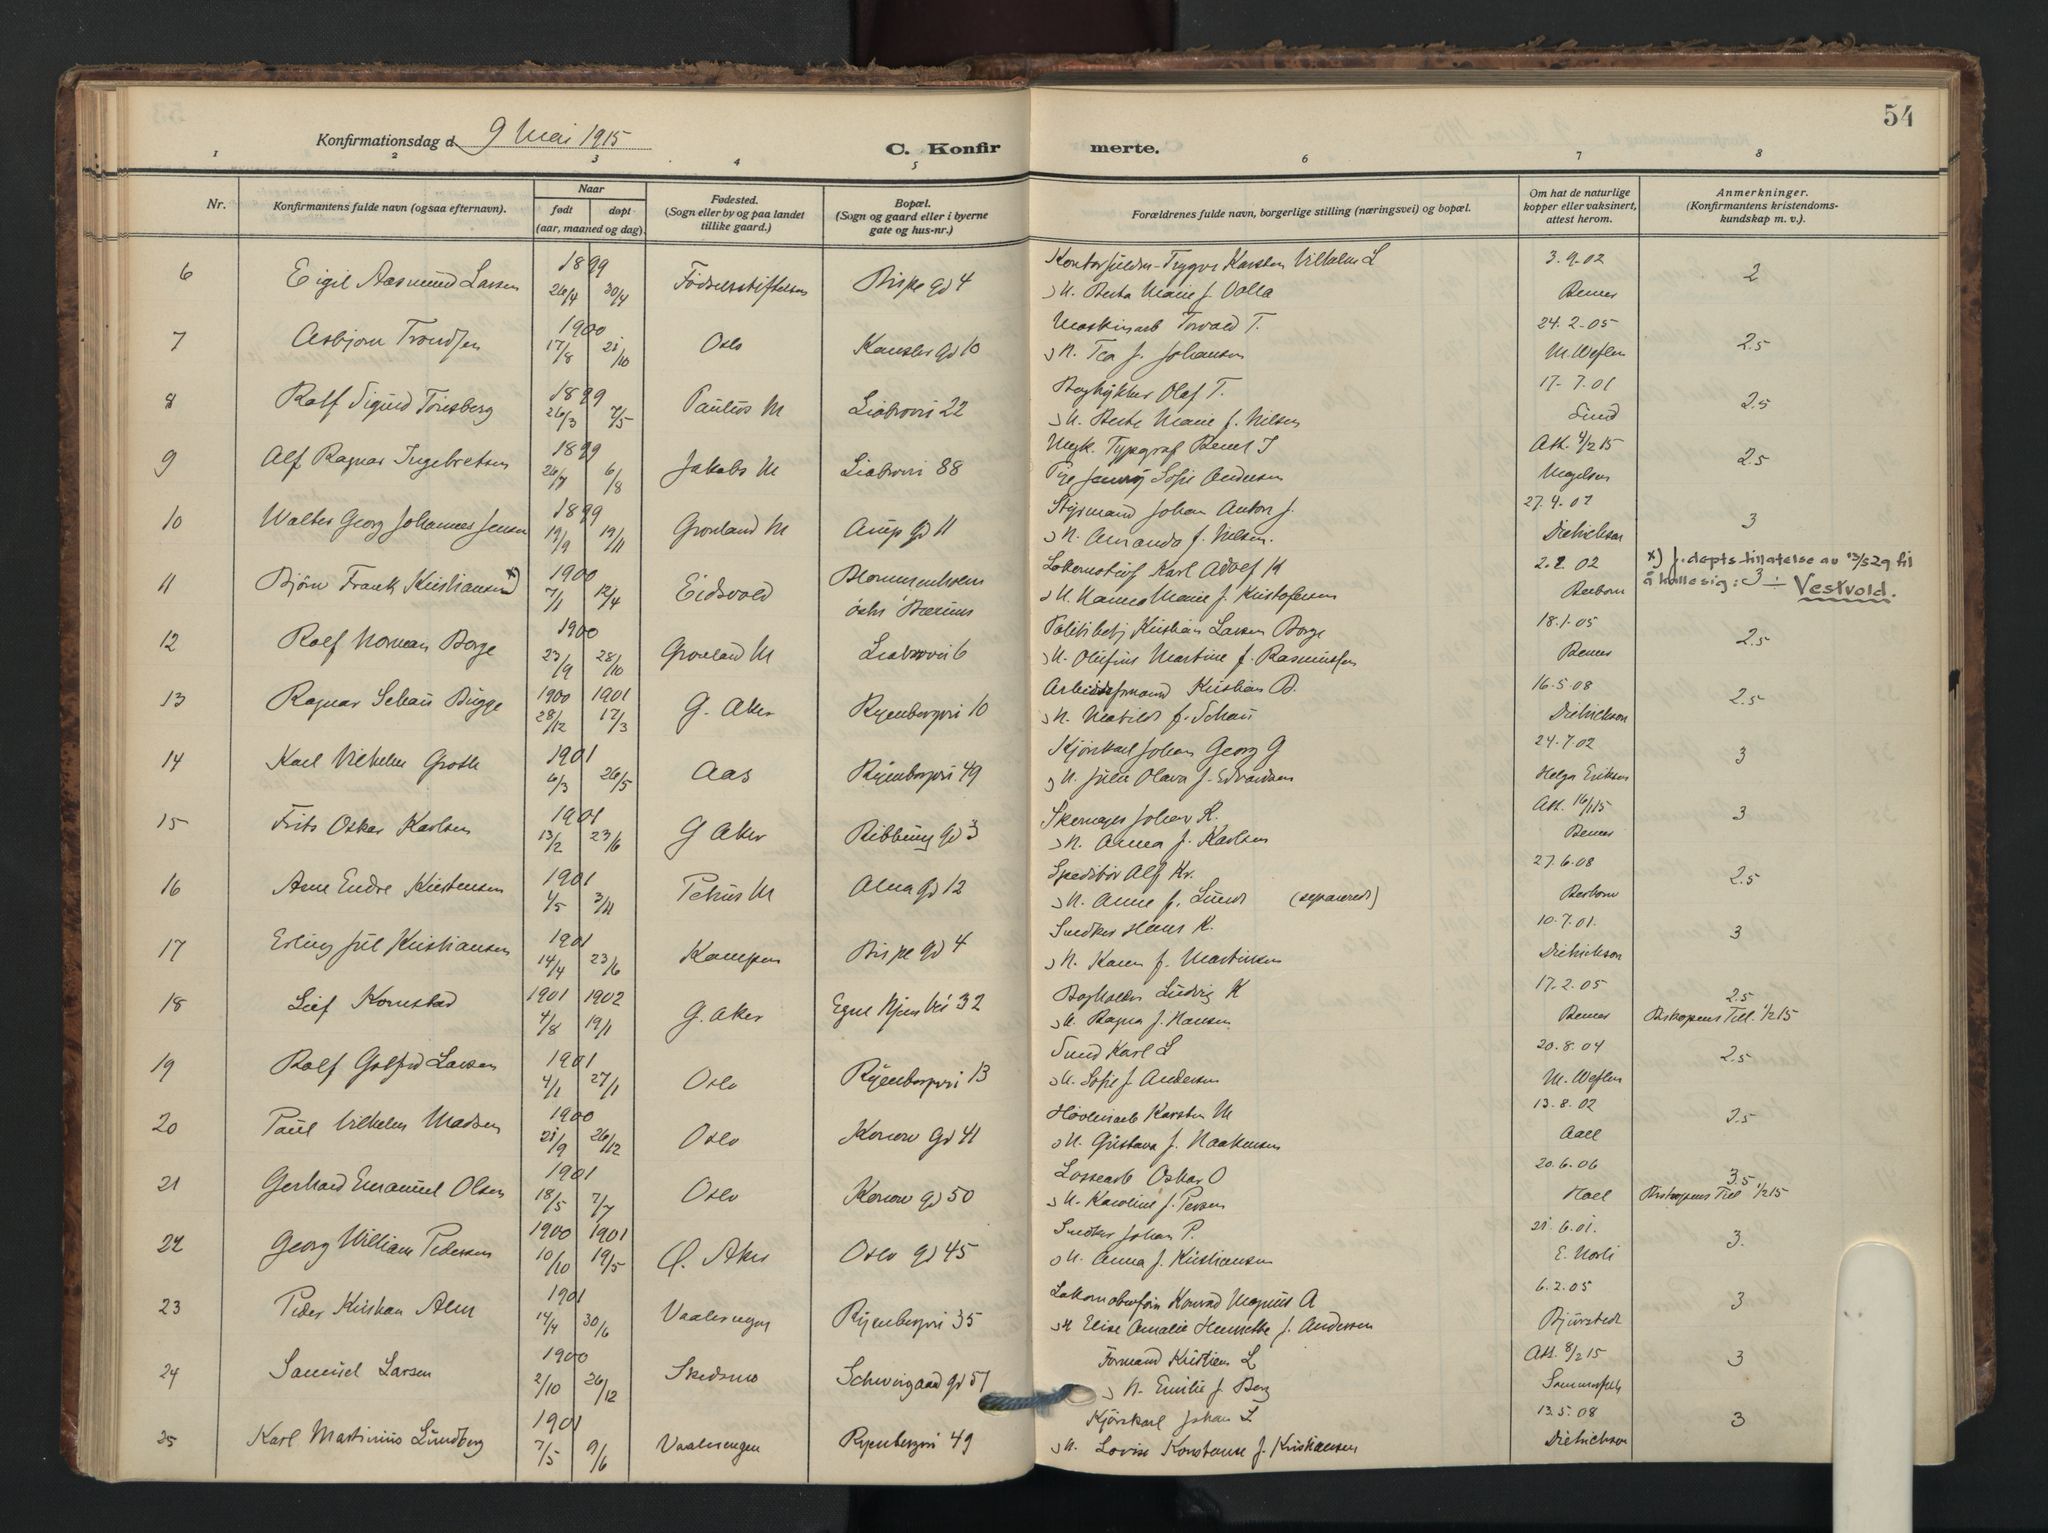 54
Konfirmationsdag d. 9 Mai 1915
C. Konfir merte.
1 2 3 4 5 6 7 8
Nr.
Konfirmantens fulde navn (ogsaa efternavn).
Naar
født døpt
(aar, maaned og dag).
Fødested.
(Sogn eller by og paa landet
tillike gaard.)
Bopæl.
(Sogn og gaard eller i byerne
gate og hus-nr.)
Forældrenes fulde navn, borgerlige stilling (næringsvei) og bopæl.
Om hat de naturlige
kopper eller vaksinert,
attest herom.
Anmerkninger.
(Konfirmantens kristendoms-
kundskap m. v.)
1899 Trygve Karsten Vilhelm L 3.9.02
6 Eigil Aasmund Larsen 26/4 30/4 Fødselsstiftelsen Bispe gd 4 Marie f. 2
1900 Maskinarb Torvald T. 24.2.05
7 Asbjørn Trondsen 17/8 21/10 Oslo Kansler gd 10 H. Tea f. Johansen 2.5
1899 Olaf T. 17.7.01
8 Rolf Sigurd 26/3 7/5 Paulus M 22 H. Berte Marie f. Nilsen Lund 2.5
1899 Typograf Bernt I Att. 4/2 15
9 Alf Ragnar Ingebretsen 26/7 6/8 Jakobs M 88 Pige Jenny Sofie Andersen 2.5
1899 Styrmand Johan Anton J. 27.4.02
10 Walter Georg Johannes Jensen 19/9 19/11 Grønland M gd 11 H. Amanda f. Nilsen. Dietrichson 3
1900 Karl Adolf K 02 x) J. depts. tillatelse av 13/5 29 til
11 Bjørn Frank Kristiansen x) 7/1 12/4 Eidsvold Blommenholm H. Marie f. Kristofersen å kalle sig: 3 ÷ Vestvold.
Bærum
1900 Kristian Larsen Borge 18.1.05
12 Rolf Norman Borge 23/9 28/10 Grønland M 6 H. Martine f. Rasmussen 2.5
1900 1901 Kristian B. 16.5.08
13 Ragnar Schau Bugge 28/12 17/3 G. Aker Ryenbergvei 10 H. Matilde f. Schau Dietrichson 2.5
1901 Kjørekarl Johan Georg G 24.7.02
14 Karl Vilhelm Groth 6/3 26/5 Aas Ryenbergvei 49 H. Julie Olava f. Edvardsen Helga Eriksen 3
1901 Skomager Johan K. Att. 16/1 15
15 Frits Oskar Karlsen 13/2 23/6 G Aker Ribbung gd 3 H. Anna f. Karlsen 3
1901 Speditør Alf Kr. 27.6.08
16 Arne Endre Kristensen 1/5 3/11 Petrus M Alna gd 12 H. Anne f. Lund (separeret) 2.5
1901 Snedker Hans K. 10.7.01.
17 Erling Jul Kristiansen 14/4 23/6 Kampen Bispe gd 4 H. Karen f. Martinsen Dietrichson 3
1901 1902 Bogholder Ludvig K 17.2.05 2.5
18 Leif Kornstad 4/8 19/1 G. Aker Egne Hjem Vei 32 H. Ragna f. Hansen Biskopens Till. 1/2 15
1901 Karl L 20.8.04
19 Rolf Larsen 4/1 27/1 Oslo Ryenbergvei 13 H. Sofie f. Andersen 2.5
1900 Høvleriarb Karsten M 13.8.02
20 Paul Vilhelm Madsen 21/9 26/12 Oslo Konow gd 41 H. Gustava f. Haakensen 2.5
1901 Lossearb Oskar O 20.6.06 3.5
21 Gerhard Emanuel Olsen 18/5 7/7 Oslo Konow gd 50 H. Karoline f. Persen Biskopens Till 1/2 15
1900 1901 Snedker Johan P. 21.6.01.
22 Georg William Pedersen 10/10 19/5 Ø. Aker Oslo gd 45 H. Anna f. Kristiansen E. Norli 3.
1901 Konrad Magnus A 6.2.05
23 Peder Kristian Alm 14/4 30/6 Vaalerengen Ryenbergvei 35 H Elise Amalie Henriette f. Andersen Bjørstedt 3
1900 Formand Kristian L Att. 8/2 15
24 Samuel Larsen 2/10 26/12 Skedsmo Schweigaard gd 57 H. Emilie f. Berg 3
1901 Kjørekarl Johan L 13.5.08
25 Karl Martinius Lundberg 7/5 9/6 Vaalerengen Ryenbergvei 49 H. Lovise Konstanse f. Kristiansen Dietrichson 3